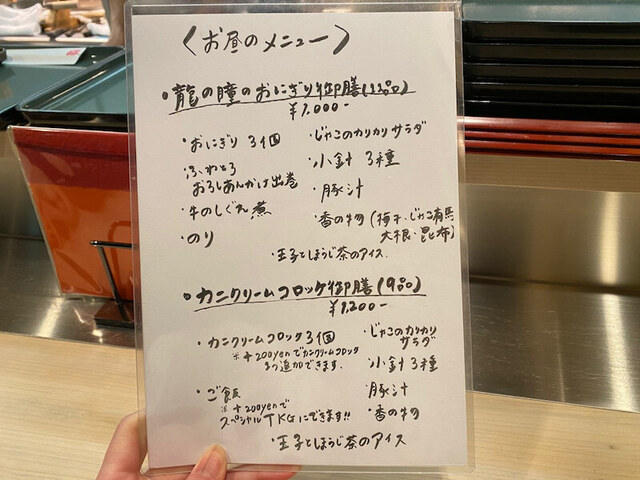 〈お昼のメニュー〉
・龍の瞳のおにぎり御膳(11品)
¥1.000-
・おにぎり 3個
・ふわとろ
おろしあんかけ出巻
・牛のしぐれ煮
・のり
・じゃこのカリカリサラダ
・小鉢 3種
・豚汁
・香の物(梅干・じゃこ有馬
大根・昆布)
・玉子とほうじ茶のアイス.
・カニクリームコロッケ御膳(9品)
¥1.200-
・カニクリームコロッケ3個
※+200yenでカニクリームコロッケ
1つ追加できます.
・ご飯
※+200yenで
スペシャルTKGにできます!!
・じゃこのカリカリ
サラダ
小鉢 3種
豚汁
・香の物
・玉子とほうじ茶のアイス